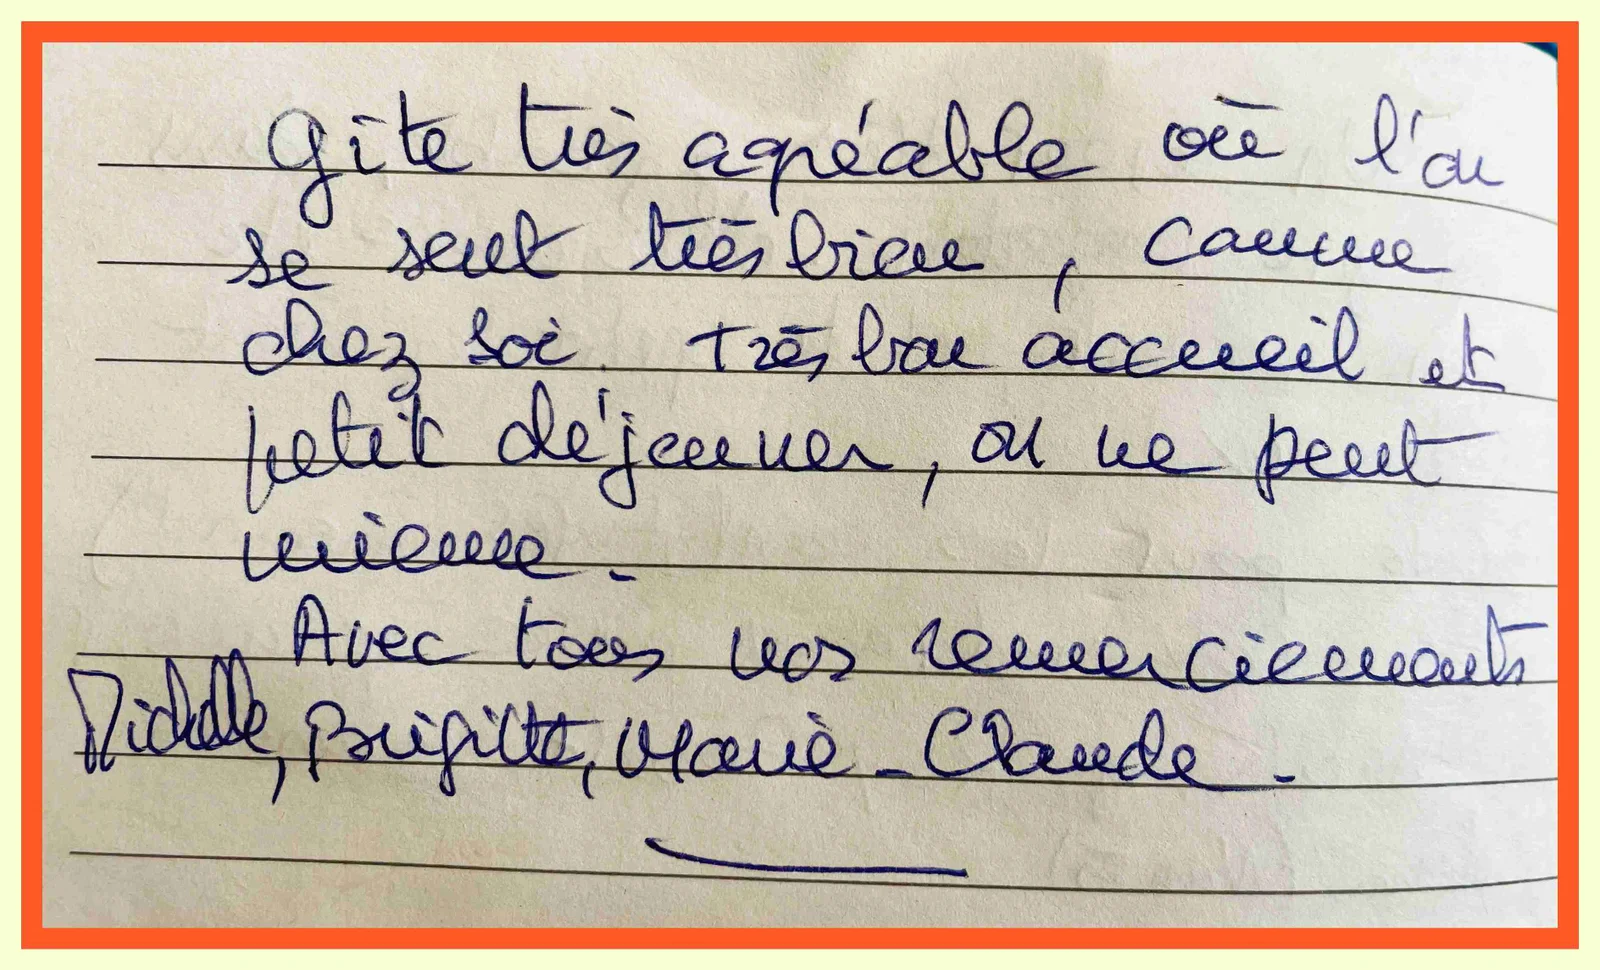 Gîte très agréable où l'on
se sent très bien, comme
chez soi. Très bon accueil et
petit déjeuner, on ne peut
mieux.
Avec tous nos remerciements
Michelle, Brigitte, Marie-Claude.